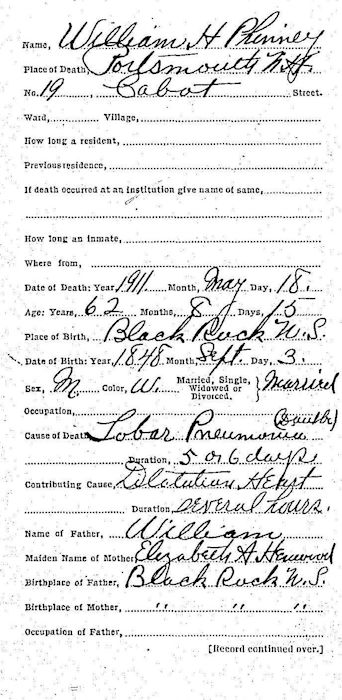 Name, William H Phinney
Place of Death, Portsmouth N.H.
No. 19 Cabot Street.
Ward, Village,
How long a resident,
Previous residence,
If death occurred at an institution give name of same,
How long an inmate,
Where from,
Date of Death: Year, 1911. Month, May Day, 18.
Age: Years, 62 Months, 8 Days, 15
Place of Birth, Black Rock N.S.
Date of Birth: Year, 1848 Month, Sept. Day, 3.
Sex, M. Color, W. Married, Single, Widowed or Divorced. } Married
Occupation,
(Double)
Cause of Death, Lobar Pneumonia
Duration, 5 or 6 days.
Contributing Cause, Dilatation Heart
Duration several hours.
Name of Father, William
Maiden Name of Mother, Elizabeth A
Birthplace of Father, Black Rock N.S.
Birthplace of Mother, " " "
Occupation of Father,
[Record continued over.]